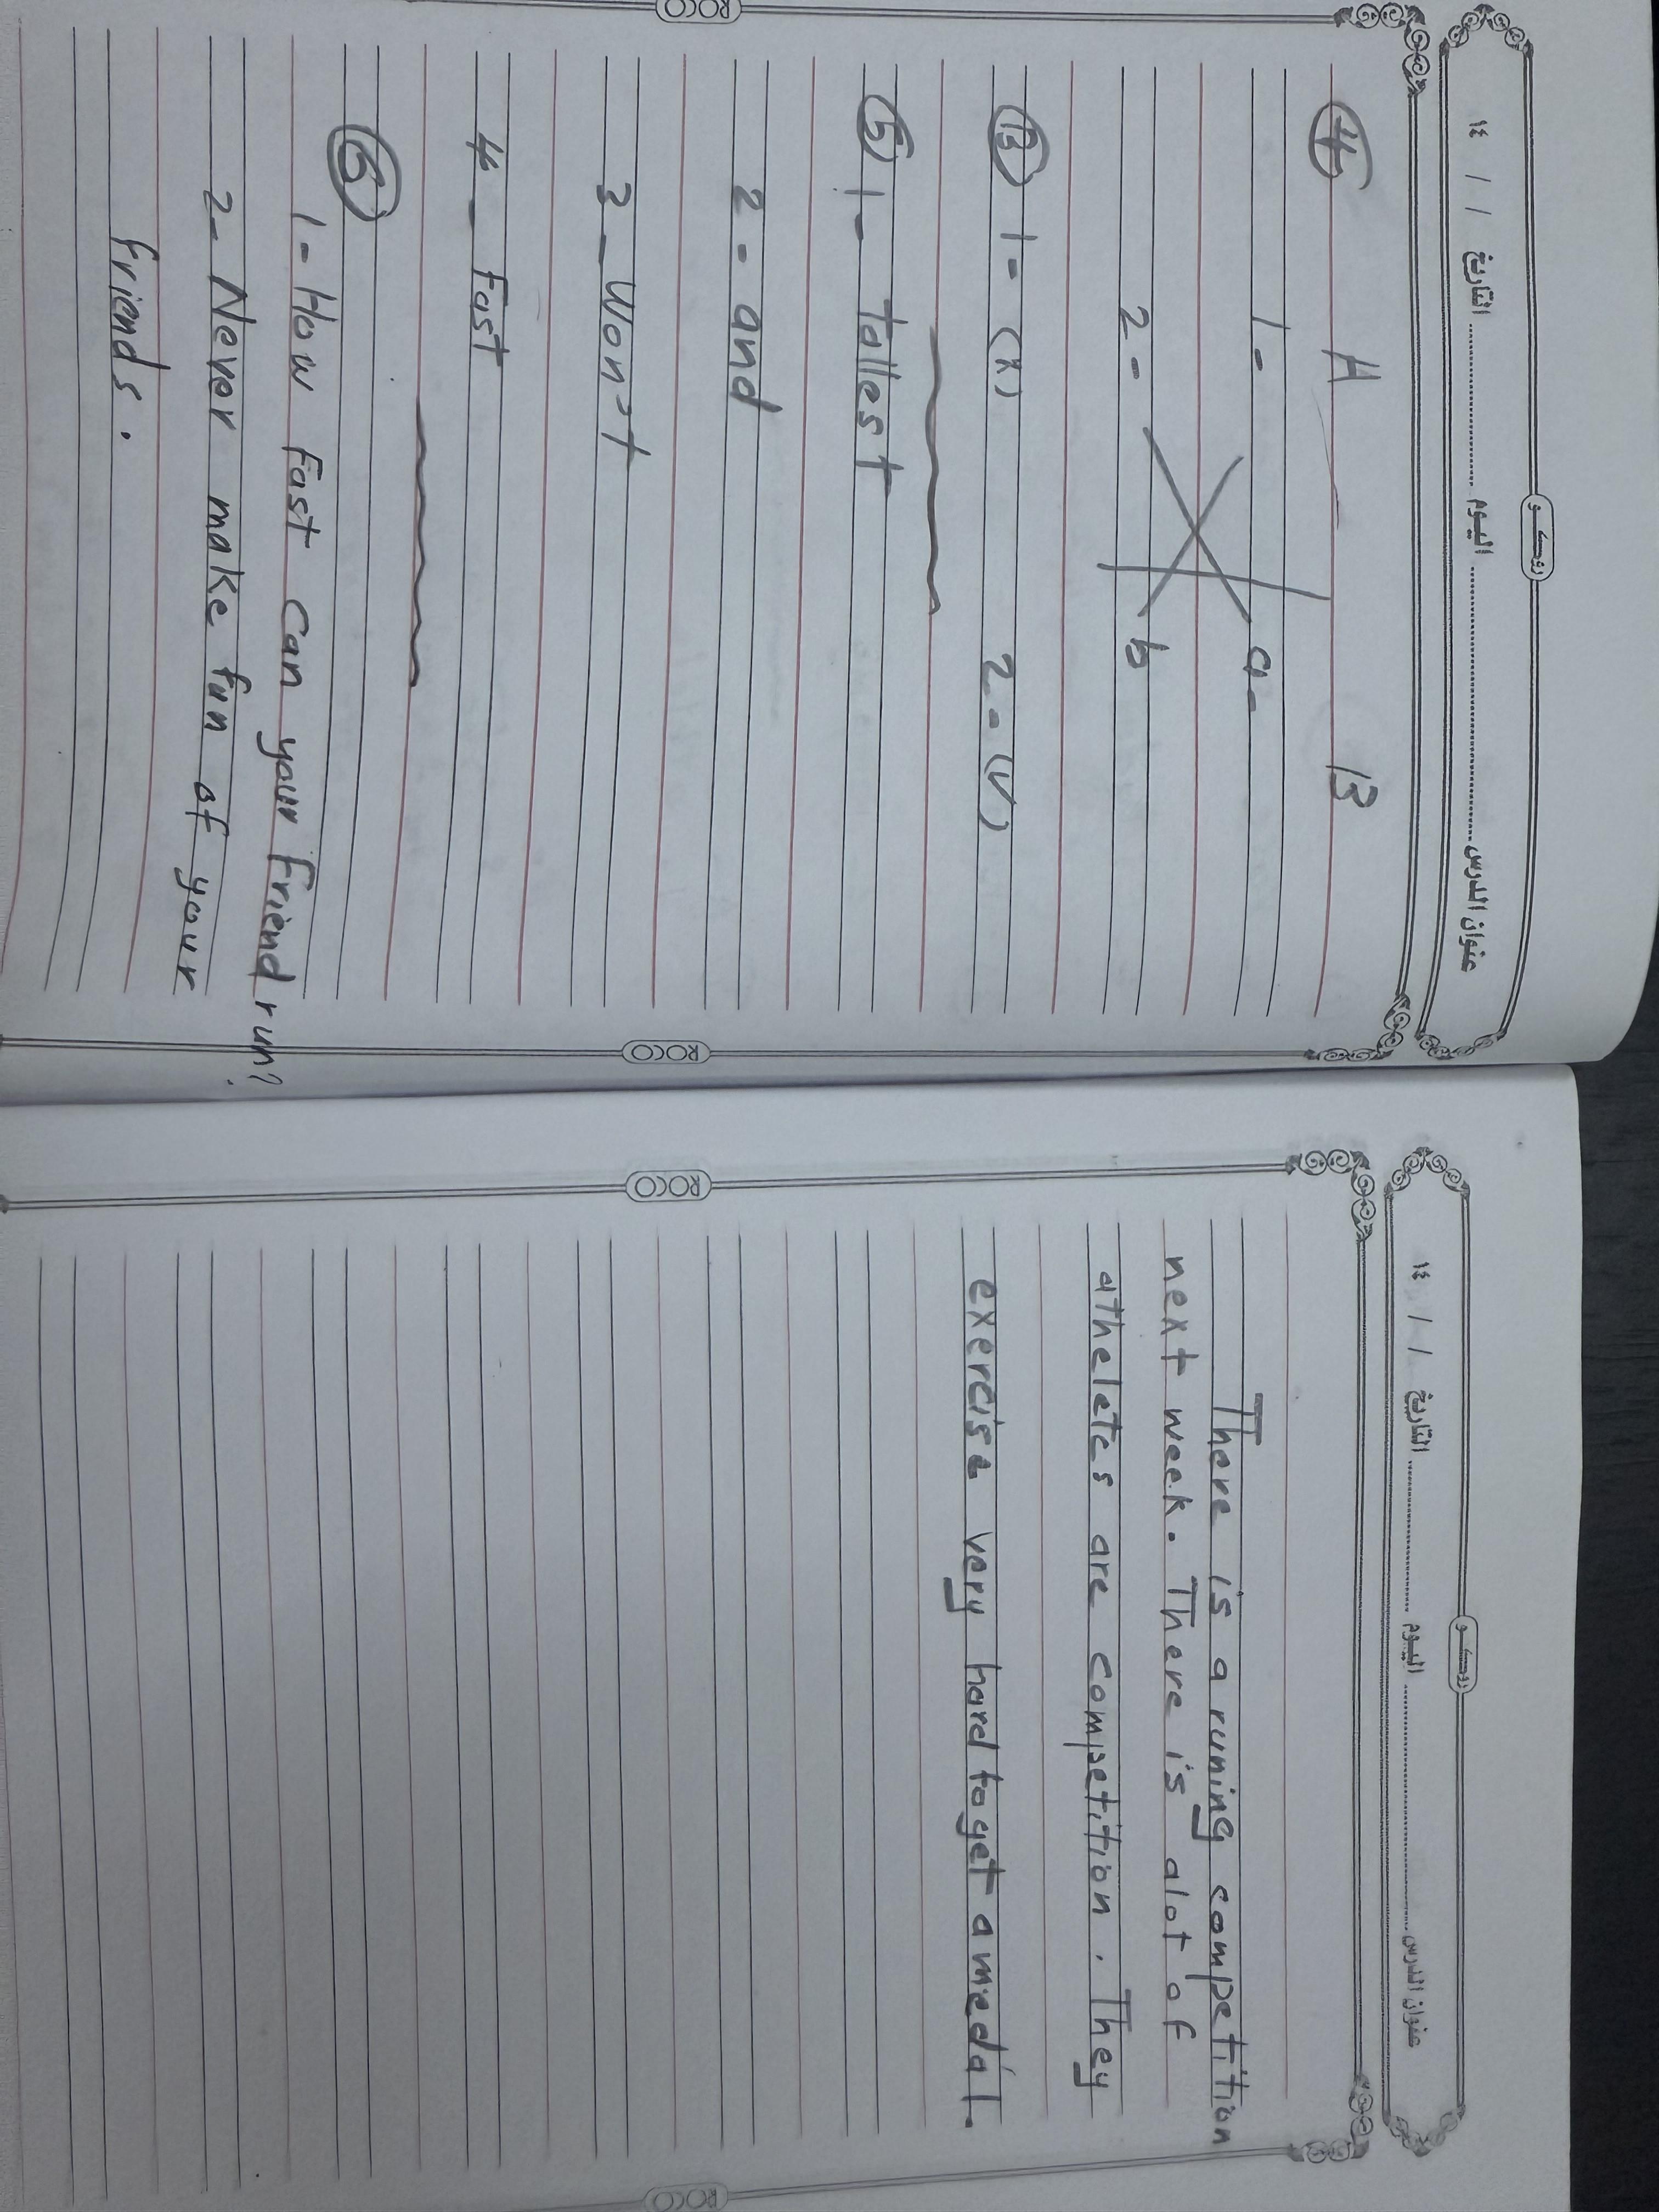 روكو
١٤ / / التاريخ ........ اليوم ........ عنوان الدرس
4 A B
1- a-
2- b
B 1- (x) 2-(✓)
5 1- tallest
2- and
3- won't
4- fast
6
1- How fast can your friend run?
2- Never make fun of your
friends.
ROCO
ROCO
روكو
١٤ / / التاريخ ........ اليوم ........ عنوان الدرس
There is a runing competition
next week. There is alot of
atheletes are competition. They
exercise very hard to get a medal.
ROCO
ROCO